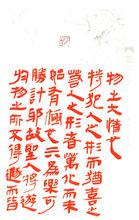 物之大情也
特犯人之形而猶喜之
若人之形者萬化而未
始有極也其為樂可
勝計邪故聖人將遊
於物之所不得遯而皆